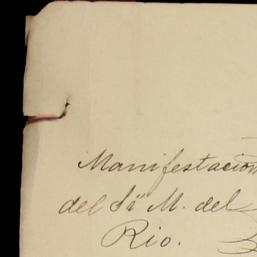 Manifestacion
del Sr. M. del
Rio.